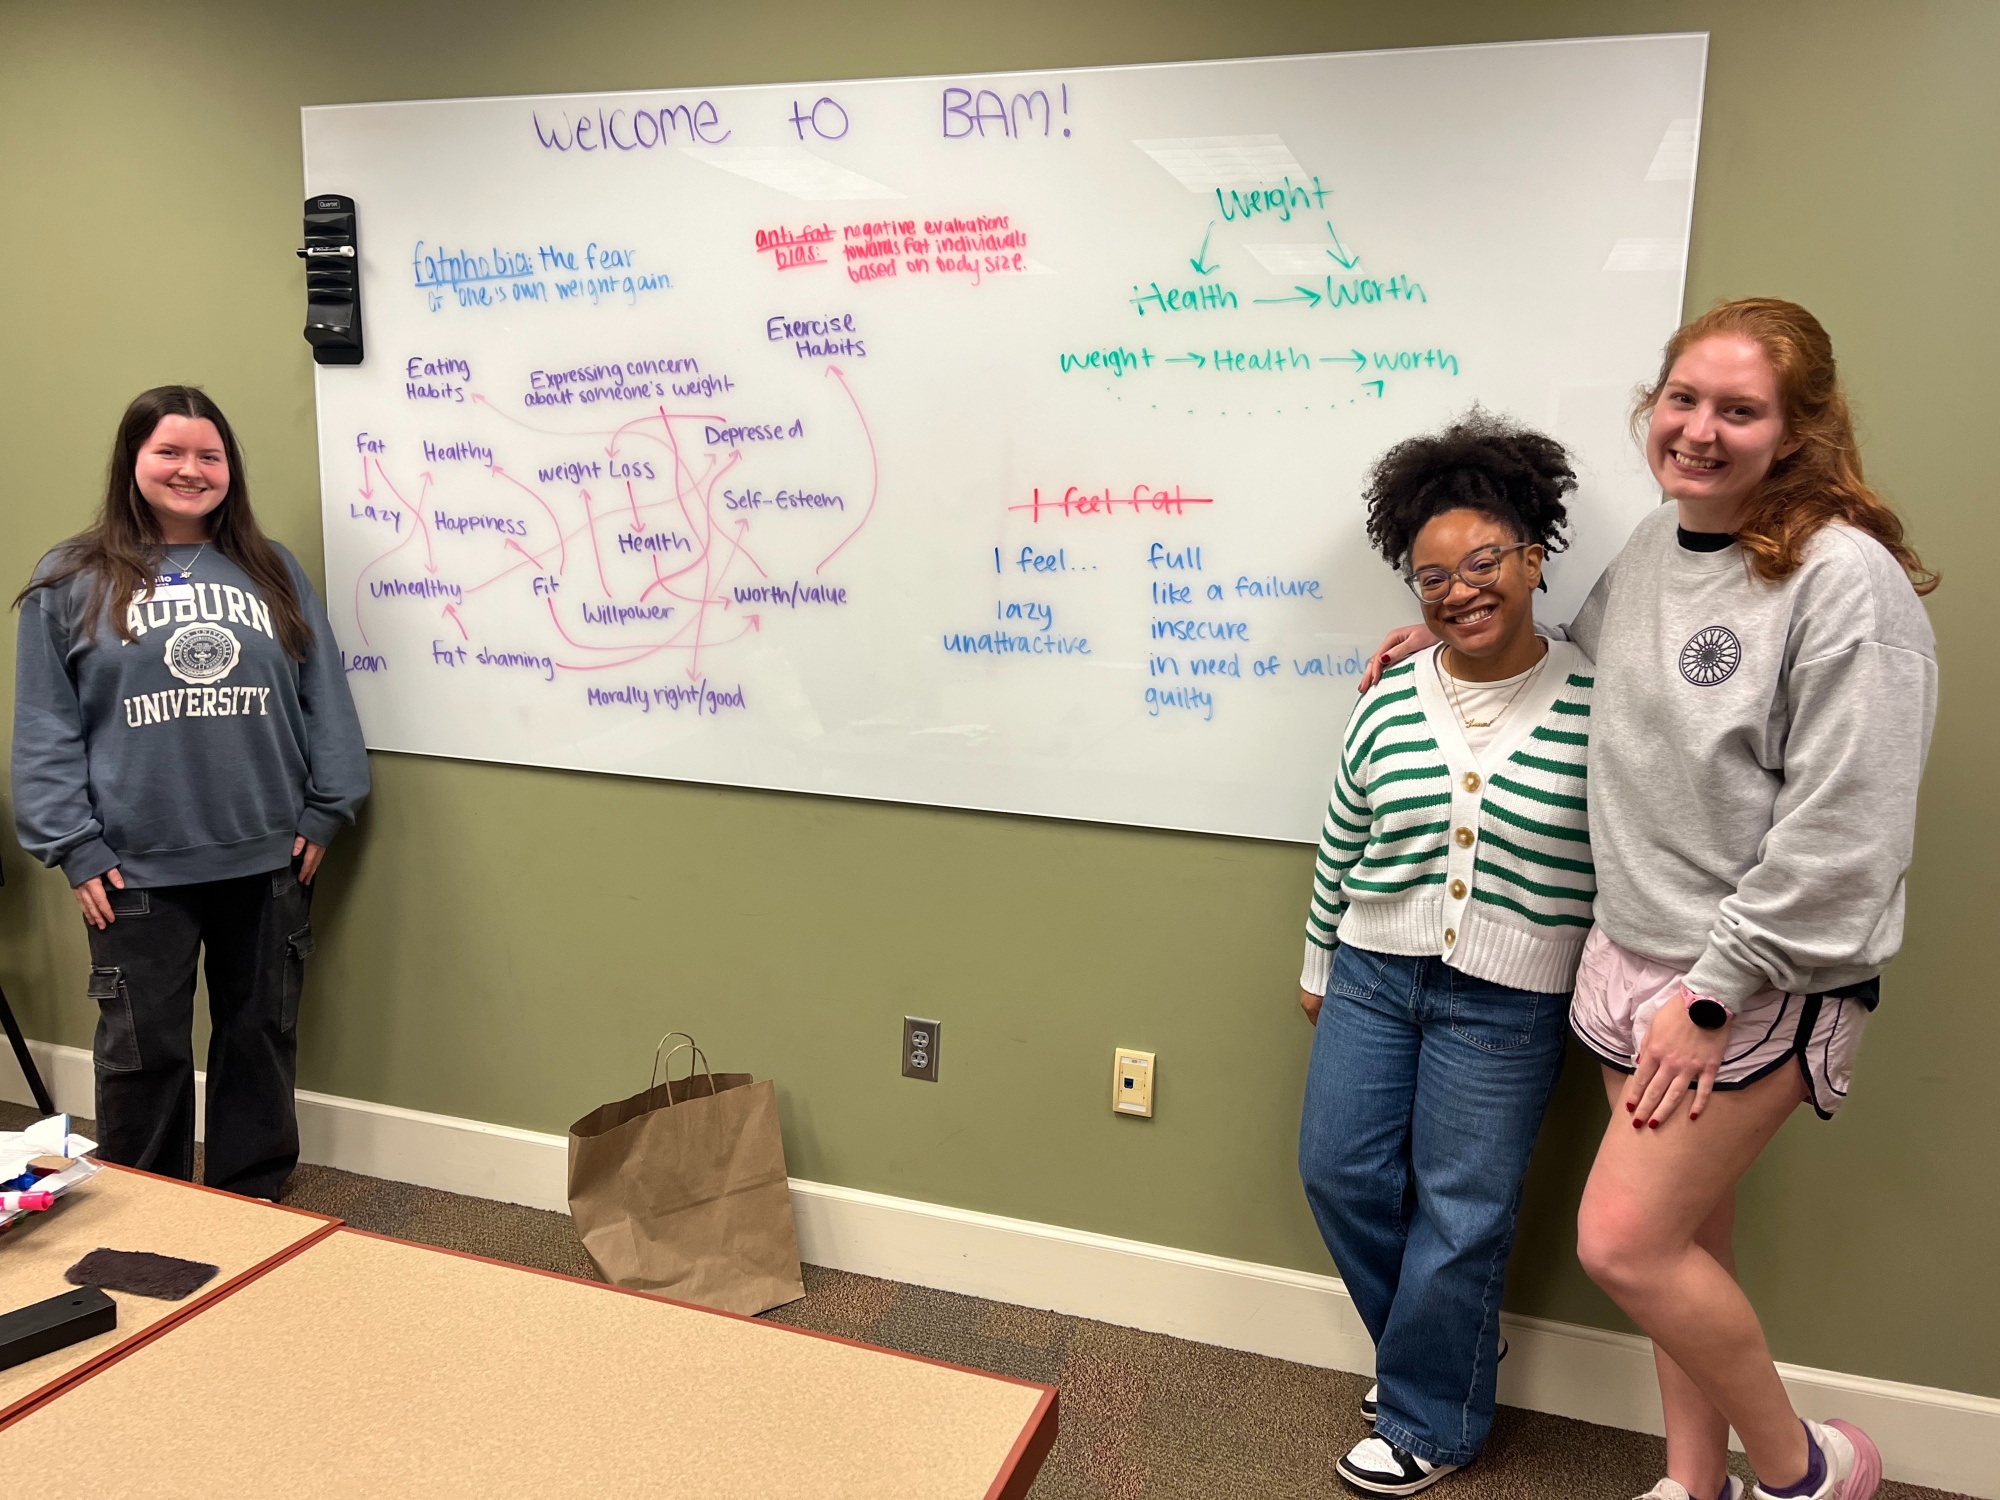 Welcome to BAM!
Quartet
fatphobia: the fear
of one's own weight gain.
anti-fat negative evaluations
bias: towards fat individuals
based on body size.
Weight
Health → Worth
Weight → Health → Worth
Exercise
Habits
Eating
Habits
Expressing concern
about someone's weight
Depressed
Fat
Healthy
Weight Loss
Lazy
Happiness
Self-Esteem
Health
Unhealthy
Fit
Willpower
Worth/value
Lean
Fat shaming
Morally right/good
I feel fat
I feel... full
like a failure
lazy
insecure
unattractive
in need of valid
guilty
AUBURN
UNIVERSITY